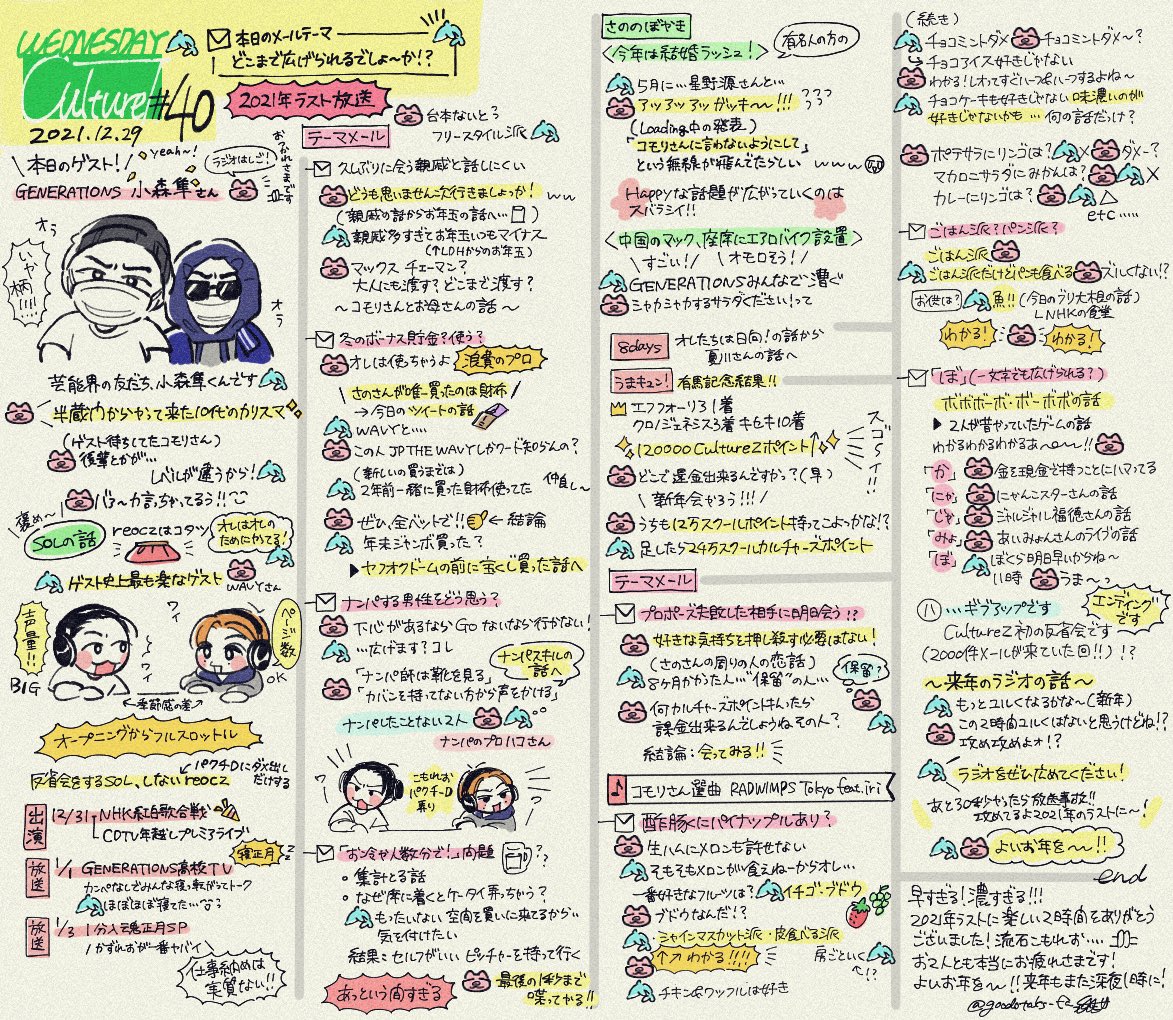 WEDNESDAY
Culture! #40
2021.12.29
本日のメールテーマ
どこまで広げられるでしょ〜か!?
2021年ラスト放送
台本ないとう
フリースタイル派
\本日のゲスト!/
yeah〜!
ラジオはしご!
おつかれさまです
GENERATIONS 小森隼さん
オラ
いや柄!!!!
オラ
芸能界の友だち、小森隼くんです
半蔵門からやって来た10代のカリスマ
(ゲスト待ちしてたコモリさん)
後輩とかが…
レベルが違うから!
バァ〜カ言っちゃってるう!!
褒め〜
SOLの話
reoczはコタツ
オレはオレのためにやってる!
ゲスト史上最も楽なゲスト
WAVYさん
声量!!
BIG
ワイ
ワイ
ページ数
OK
←季節感の差→
オープニングからフルスロットル
反省会をするSOL、しないreocz
パクチDにダメ出しだけする
出演
12/31 NHK紅白歌合戦
CDTV年越しプレミアライブ
寝正月
放送
1/1 GENERATIONS高校TV
カンペなしでみんな寝っ転がってトーク
ほぼほぼ寝てた…
放送
1/3 1分入魂正月SP
1かずれおが一番ヤバイ
仕事納めは実質ない!!
テーマメール
久しぶりに会う親戚と話しにくい
どうも思いません次行きましょっか! ww
(親戚の話からお年玉の話へ…)
親戚多すぎてお年玉いつもマイナス
(↑LDHからのお年玉)
マックス チェーマン?
大人にも渡す?どこまで渡す?
〜コモリさんとお母さんの話〜
冬のボーナス貯金?使う?
オレは使っちゃうよ 浪費のプロ
さのさんが唯一買ったのは財布
→今日のツイートの話
WAVYと…
この人JP THE WAVYしかワード知らんの?
(新しいの買うまでは)
2年前一緒に買った財布使ってた
仲良し〜
ぜひ、金バットで!! ←結論
年末ジャンボ買った?
▶ヤフオクドームの前に宝くじ買った話へ
ナンパする男性をどう思う?
下心があるならGoないなら行かない!
…広げます?コレ
ナンパスキルの話へ
「ナンパ師は靴を見る」
「カバンを持ってない方から声をかける」
ナンパしたことない2人
ナンパのプロハコさん
こもれおパクチーD弄り
「おシャ人数分で!」問題
・集計とる話
・なぜ席に着くとケータイ弄っちゃう?
もったいない空間を買いに来てるから…
気を付けたい
結果:セルフがいい ピッチャーを持って行く
あっという間すぎる
最後の1秒まで喋ってやる!!
さののぼやき
<今年は結婚ラッシュ!>
有名人の方の
5月に…星野源さんと…
アッアッアッガッキ〜!!!
(Loading中の発表)
「コモリさんに言わないようにして」
という無線が飛んでたらしい www
Happyな話題が広がっていくのは
スバラシイ!!
<中国のマック、座席にエアロバイク設置>
\すごい!/ \オモロそう!/
GENERATIONSみんなで漕ぐ
シャカシャカするサラダください!って
8days
オレたちは日向!の話から
夏川さんの話へ
うまキュン!
有馬記念結果!!
エフフォーリア1着
クロノジェネシス3着 キセキ10着
120000 CultureZポイント!
スゴーイ!!
どこで還金出来るんですか?(早)
\新年会やろう!!!/
うちも12万スクールポイント持ってこよっかな!?
足したら24万スクールカルチャーズポイント
テーマメール
プロポーズ失敗した相手に明日会う!?
好きな気持ちを押し殺す必要はない!
(さのさんの周りの人の恋話)
8ヶ月かかった人…"保留"の人…
保留?
何カルチャーズポイントもらったら
課金出来るんでしょうねその人?
結論:会ってみる!!
コモリさん選曲 RADWIMPS Tokyo feat.iri
酢豚にパイナップルあり?
生ハムにメロンも許せない
そもそもメロンが食えねーからオレ…
一番好きなフルーツは? イチゴ・ブドウ
ブドウなんだ!?
シャインマスカット派・皮食べる派
↑↗わかる!!!!
房ごといく↑!?
チキン&ワッフルは好き
(続き)
チョコミントダメ チョコミントダメ〜?
チョコアイス好きじゃない
わかる!レオってすぐハーつ&ハーつするよね〜
チョコケーキも好きじゃない味濃いのが
好きじゃないかも…何の話だっけ?
ポテサラにリンゴは? × ダメ〜?
マカロニサラダにみかんは? ×
カレーにリンゴは? △
etc……
ごはん派?パン派?
ごはん派
ごはん派だけどパンも食べる ズルくない!?
お供は? 魚!!(今日のブリ大根の話)
NHKの食堂
わかる! わかる!
「ぼ」(一文字でも広げられる?)
ボボボーボ・ボーボボの話
▶2人が昔やっていたゲームの話
わかるわかるわかるあ〜〜!!
「か」金を現金で持つことにハマってる
「にゃ」にゃんこスターさんの話
「じゃ」ジャルジャル福徳さんの話
「みょ」あいみょんさんのライブの話
「ぼ」ぼくら明日早いからね〜
11時 うま〜
…ギブアップです
エンディングです
CultureZ初の反省会です
(2000件メールが来ていた回!!)!?
〜来年のラジオの話〜
もっとユルくなるかな〜(新年)
この2時間ユルくはないと思うけどね!?
攻め攻めよォ!?
ラジオをぜひ広めてください!
あと30秒やったら放送事故!!
攻めてるよ2021年のラストに〜!
よいお年を〜!!
end
早すぎる!濃すぎる!!!
2021年ラストに楽しい2時間をありがとう
ございました!流石こもれお…
お2人とも本当にお疲れさまです!
よいお年を〜!!来年もまた深夜1時に!